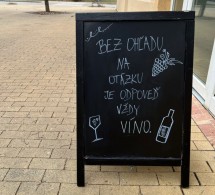 BEZ OHĽADU
NA
OTÁZKU
JE ODPOVEĎ
VŽDY
VÍNO.